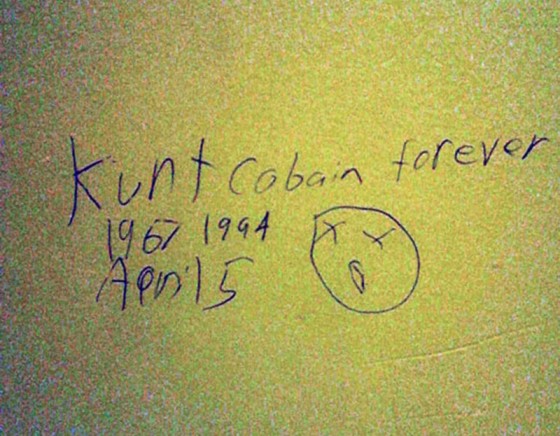 Kunt Cobain forever
1967 1994
April 5